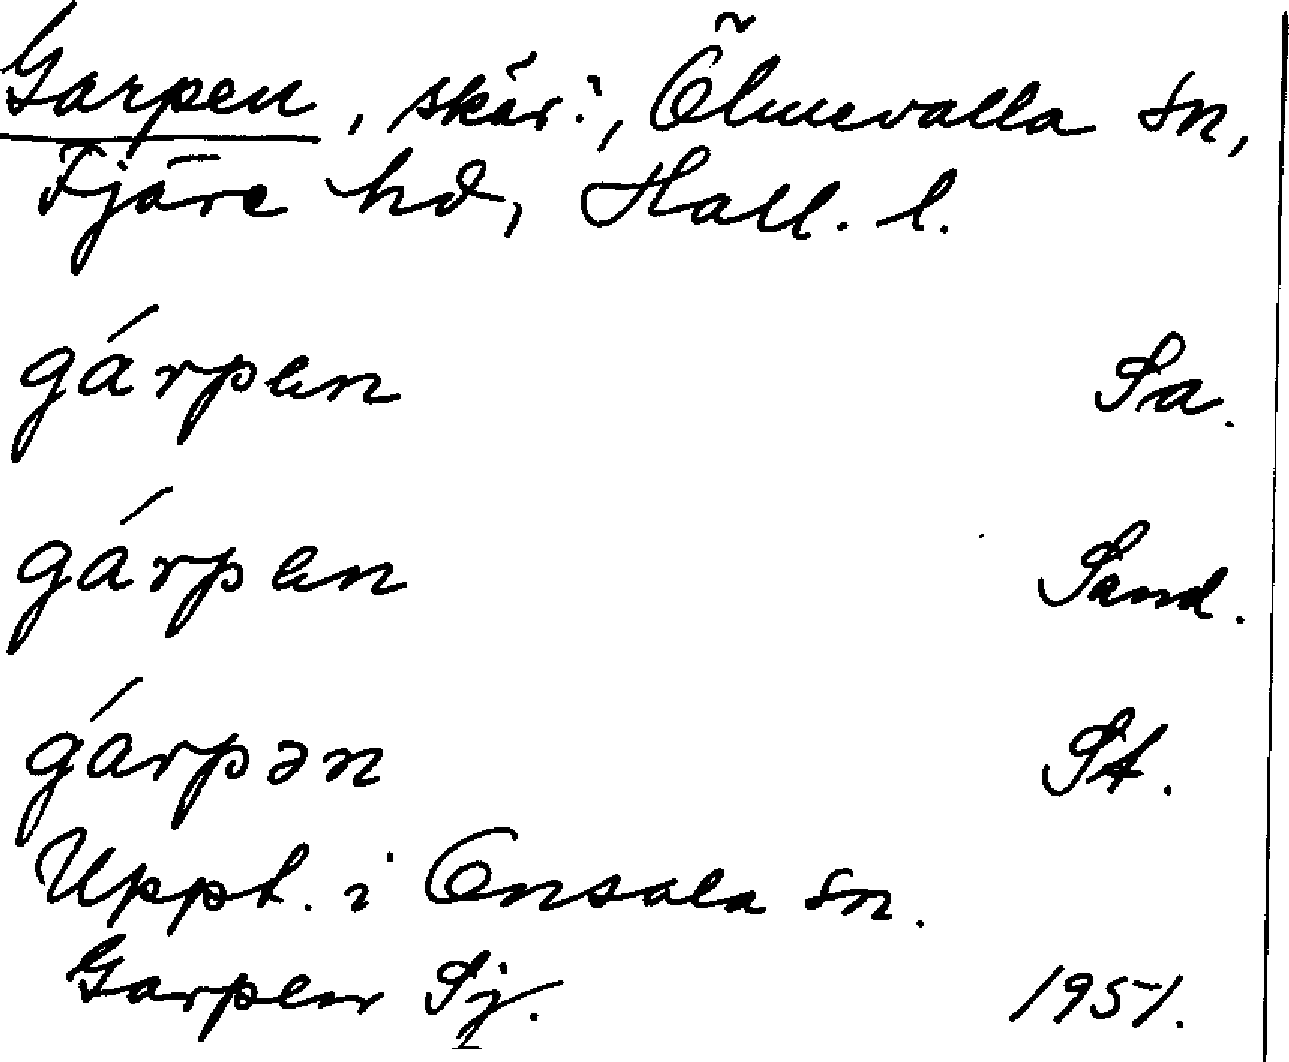 Garpen, skär i, Ölmevalla sn,
Fjäre hd, Hall. l.
gárpen Sa.
gárpen Sand.
gárpən St.
Uppt. i Onsala sn.
Garpen Sj. 1951.